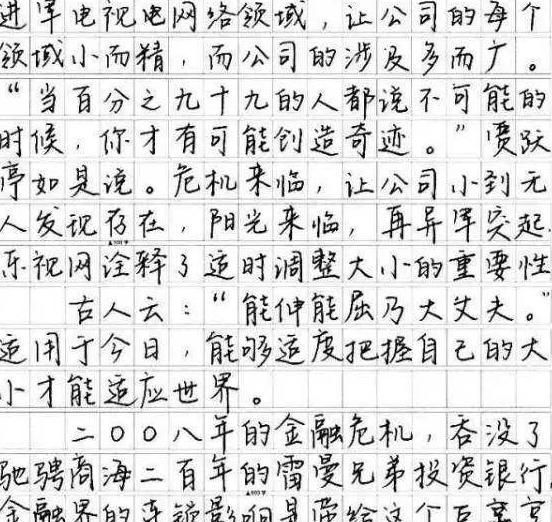 进军电视电网络领域，让公司的每个
领域小而精，而公司的涉及多而广。
“当百分之九十九的人都说不可能的
时候，你才有可能创造奇迹。”贾跃
亭如是说。危机来临，让公司小到无
人发现存在，阳光来临，再异军突起.
乐视网诠释了适时调整大小的重要性
古人云：“能伸能屈乃大丈夫。”
适用于今日，能够适度把握自己的大
小才能适应世界。
二〇〇八年的金融危机，吞没了
驰骋商海二百年的雷曼兄弟投资银行,
金融界的连锁影响是带给这个